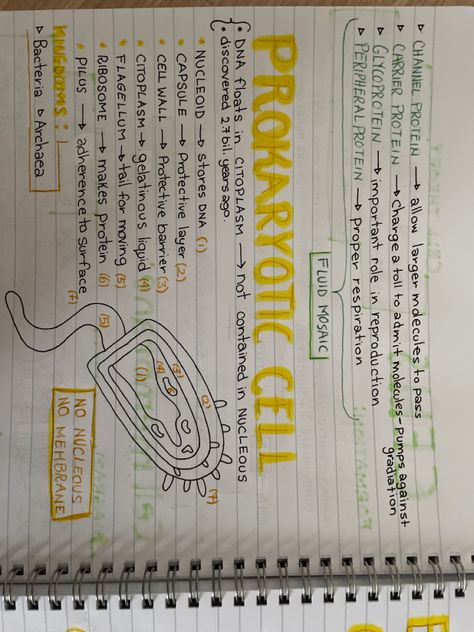 ▷ CHANNEL PROTEIN → allow larger molecules to pass
▷ CARRIER PROTEIN → charge a toll to admit molecules - pumps against gradiation
▷ GLYCOPROTEIN → important role in reproduction
▷ PERIPHERAL PROTEIN → proper respiration
FLUID MOSAIC
PROKARYOTIC CELL
• DNA floats in CITOPLASM → not contained in NUCLEOUS
• discovered 2.7 bil. years ago.
• NUCLEOID → stores DNA (1)
• CAPSULE → Protective layer (2)
• CELL WALL → Protective barrier (3)
• CITOPLASM → gelatinous liquid (4)
• FLAGELLUM → tail for moving (5)
• RIBOSOME → makes protein (6)
• PILUS → adherence to surface (7)
KINGDOMS:
▷ Bacteria ▷ Archaea
(2)
(7)
(3)
(6)
(4)
(1)
(5)
NO NUCLEOUS
NO MEMBRANE